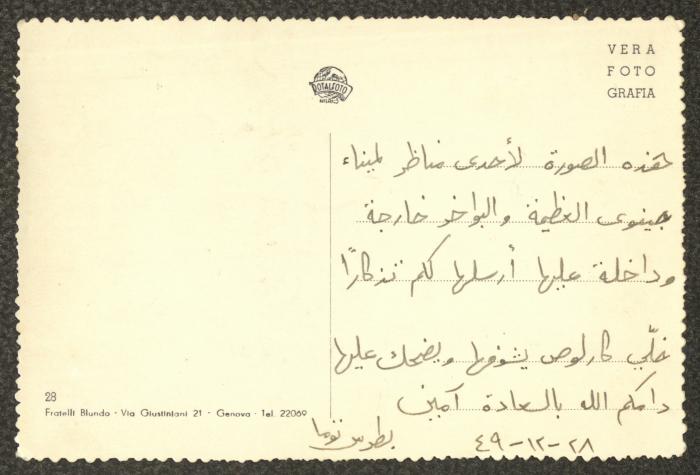 VERA
FOTO
GRAFIA
ROTALFOTO
MILANO
هذه الصورة لأحدى مناظر لميناء
جينوى العظيمة والبواخر خارجة
وداخلة عليها أرسلها لكم تذكارًا
خلّي كارلوس يشوفها ويضحك عليها
دامكم الله بالسعادة آمين
بطرس توما
٢٨-١٢-٤٩
28
Fratelli Blundo - Via Giustiniani 21 - Genova - Tel. 22069